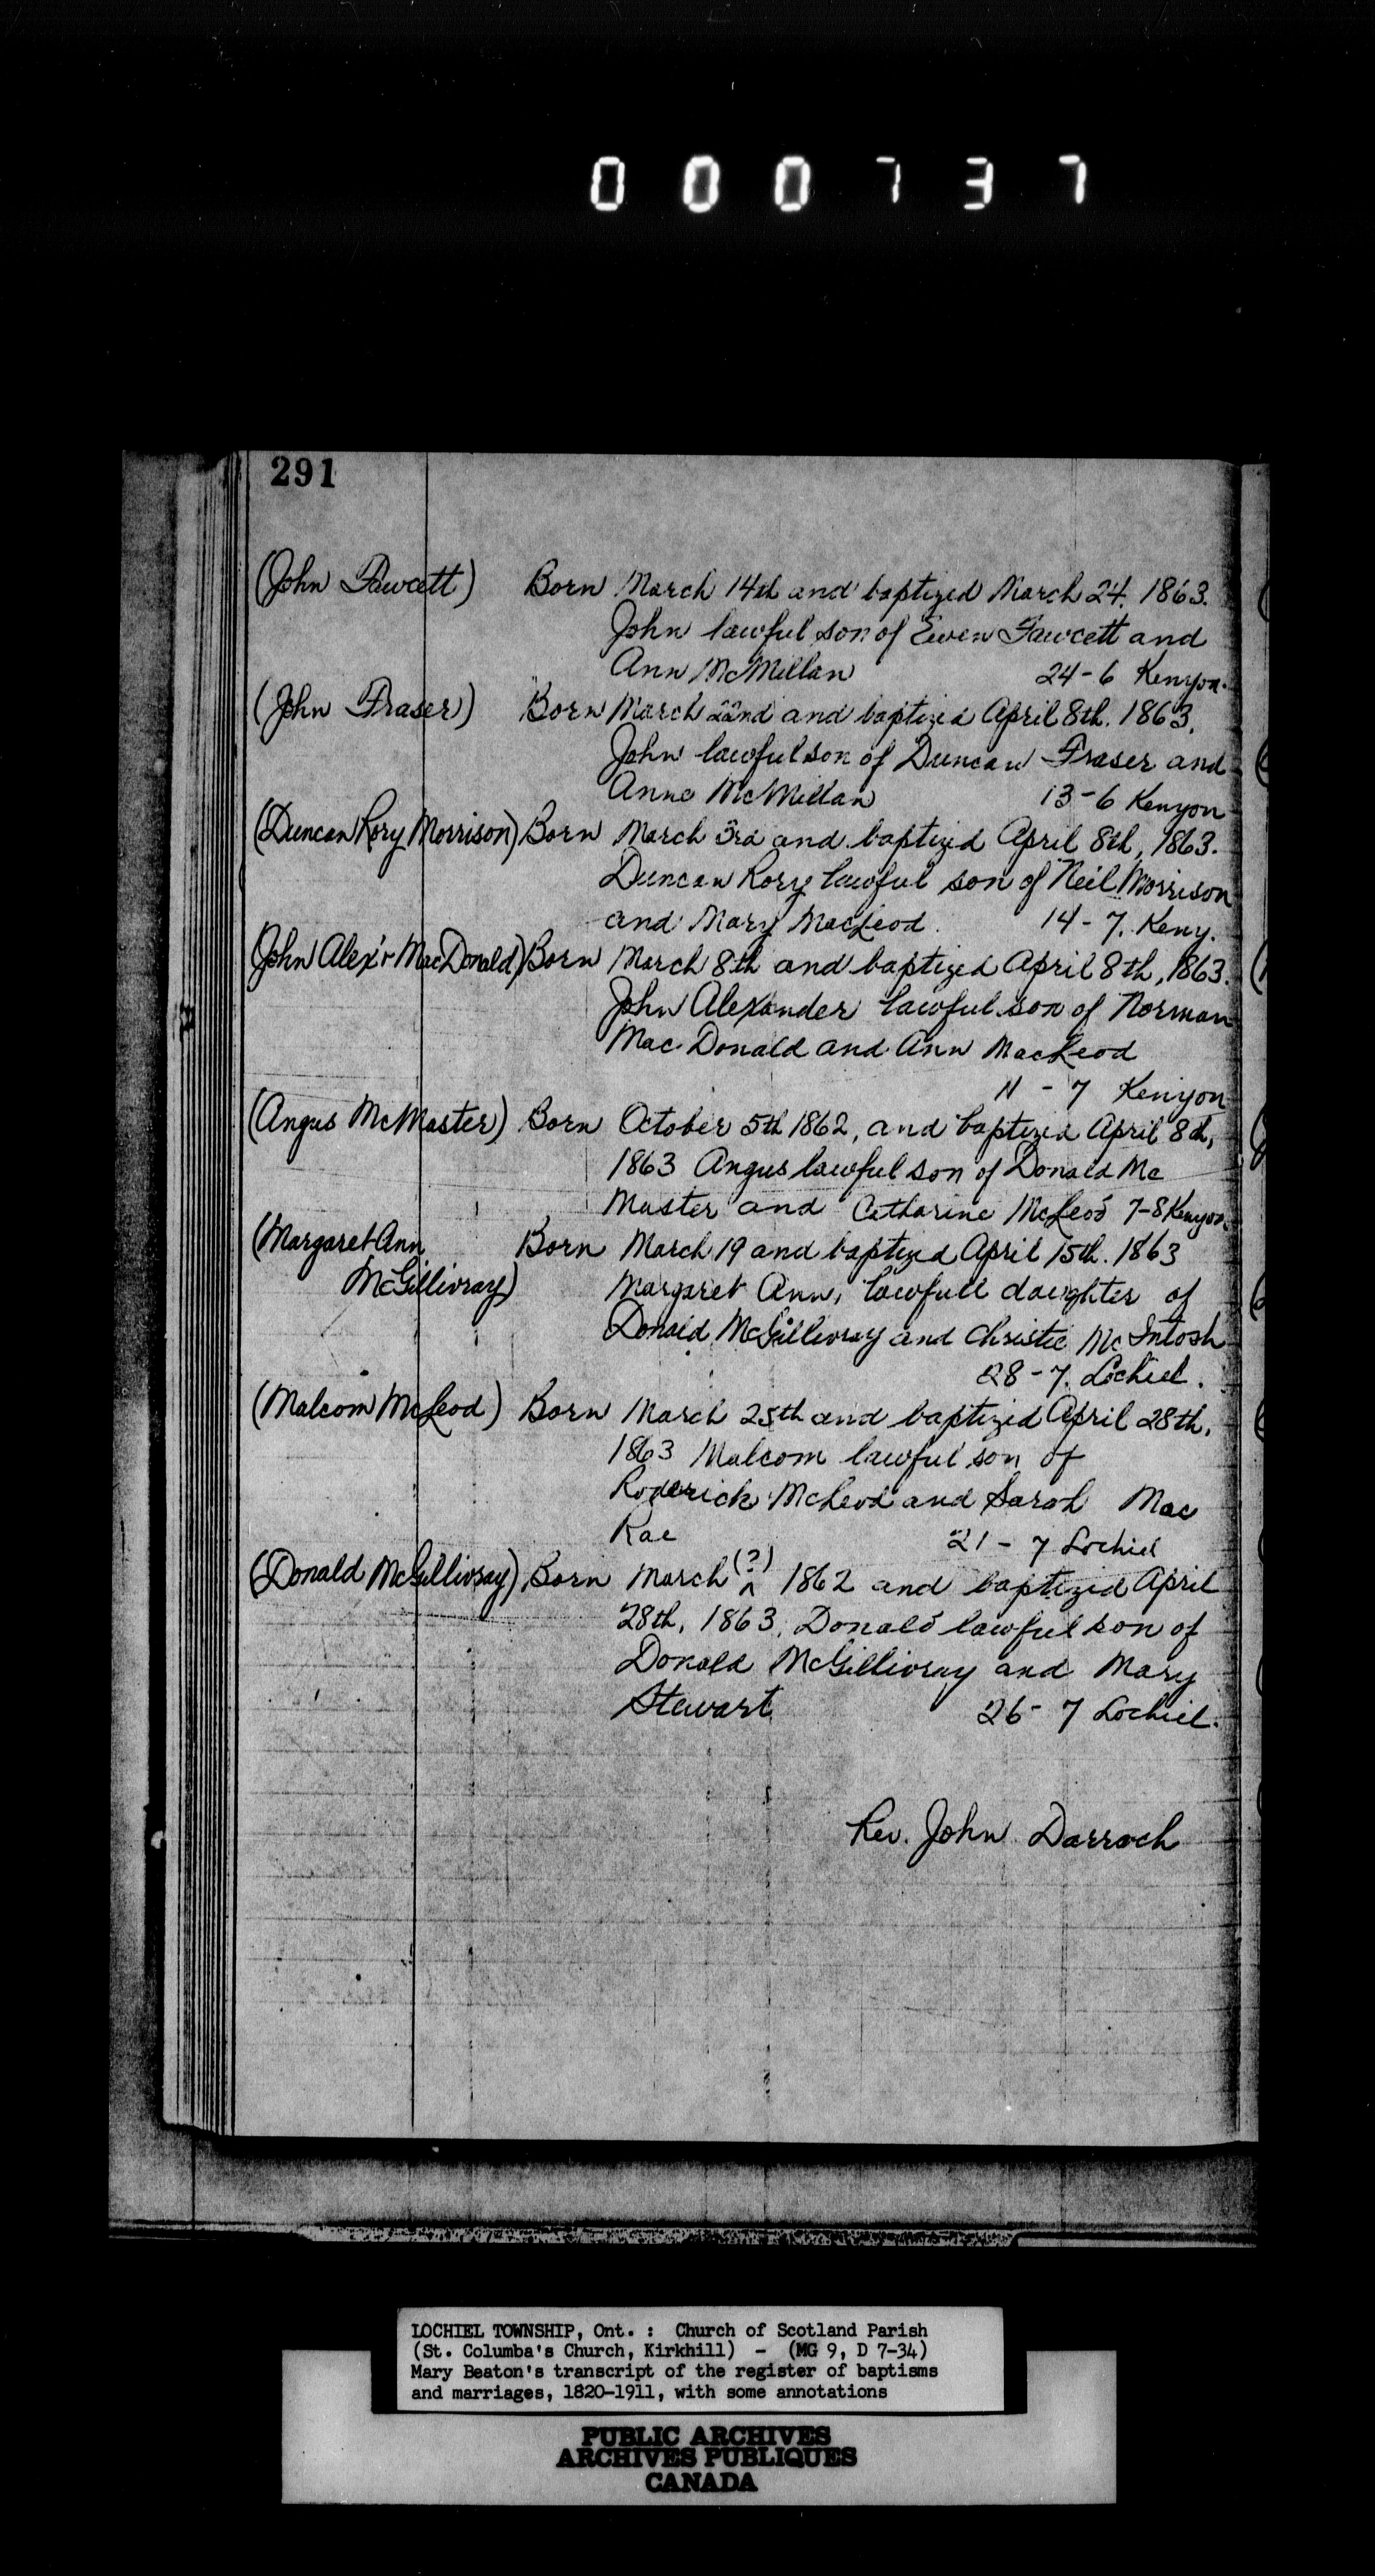 000737
291
(John Fawcett) Born March 14th and baptized March 24, 1863.
John lawful son of Ewen Fawcett and
Ann McMillan 24-6 Kenyon.
(John Fraser) Born March 22nd and baptized April 8th. 1863,
John lawful son of Duncan Fraser and
Anne McMillan 13-6 Kenyon
(Duncan Rory Morrison) Born March 3rd and baptized April 8th, 1863.
Duncan Rory lawful son of Neil Morrison
and Mary MacLeod. 14-7. Keny.
(John Alex'r MacDonald) Born March 8th and baptized April 8th, 1863.
John Alexander lawful son of Norman
MacDonald and Ann MacLeod
11-7 Kenyon
(Angus McMaster) Born October 5th 1862, and baptized April 8th,
1863 Angus lawful son of Donald Mc
Master and Catharine McLeod 7-8 Kenyon.
(Margaret Ann Born March 19 and baptized April 15th. 1863
McGillivray) Margaret Ann, lawfull daughter of
Donald McGillivray and Christie McIntosh
28-7. Lochiel.
(Malcom McLeod) Born March 25th and baptized April 28th.
1863 Malcom lawful son of
Roderick McLeod and Sarah Mac
Rae 21-7 Lochiel
(Donald McGillivray) Born March (?) ^ 1862 and baptized April
28th, 1863, Donald lawful son of
Donald McGillivray and Mary
Stewart 26-7 Lochiel.
Rev. John Darroch
LOCHIEL TOWNSHIP, Ont. : Church of Scotland Parish
(St. Columba's Church, Kirkhill) - (MG 9, D 7-34)
Mary Beaton's transcript of the register of baptisms
and marriages, 1820-1911, with some annotations
PUBLIC ARCHIVES
ARCHIVES PUBLIQUES
CANADA